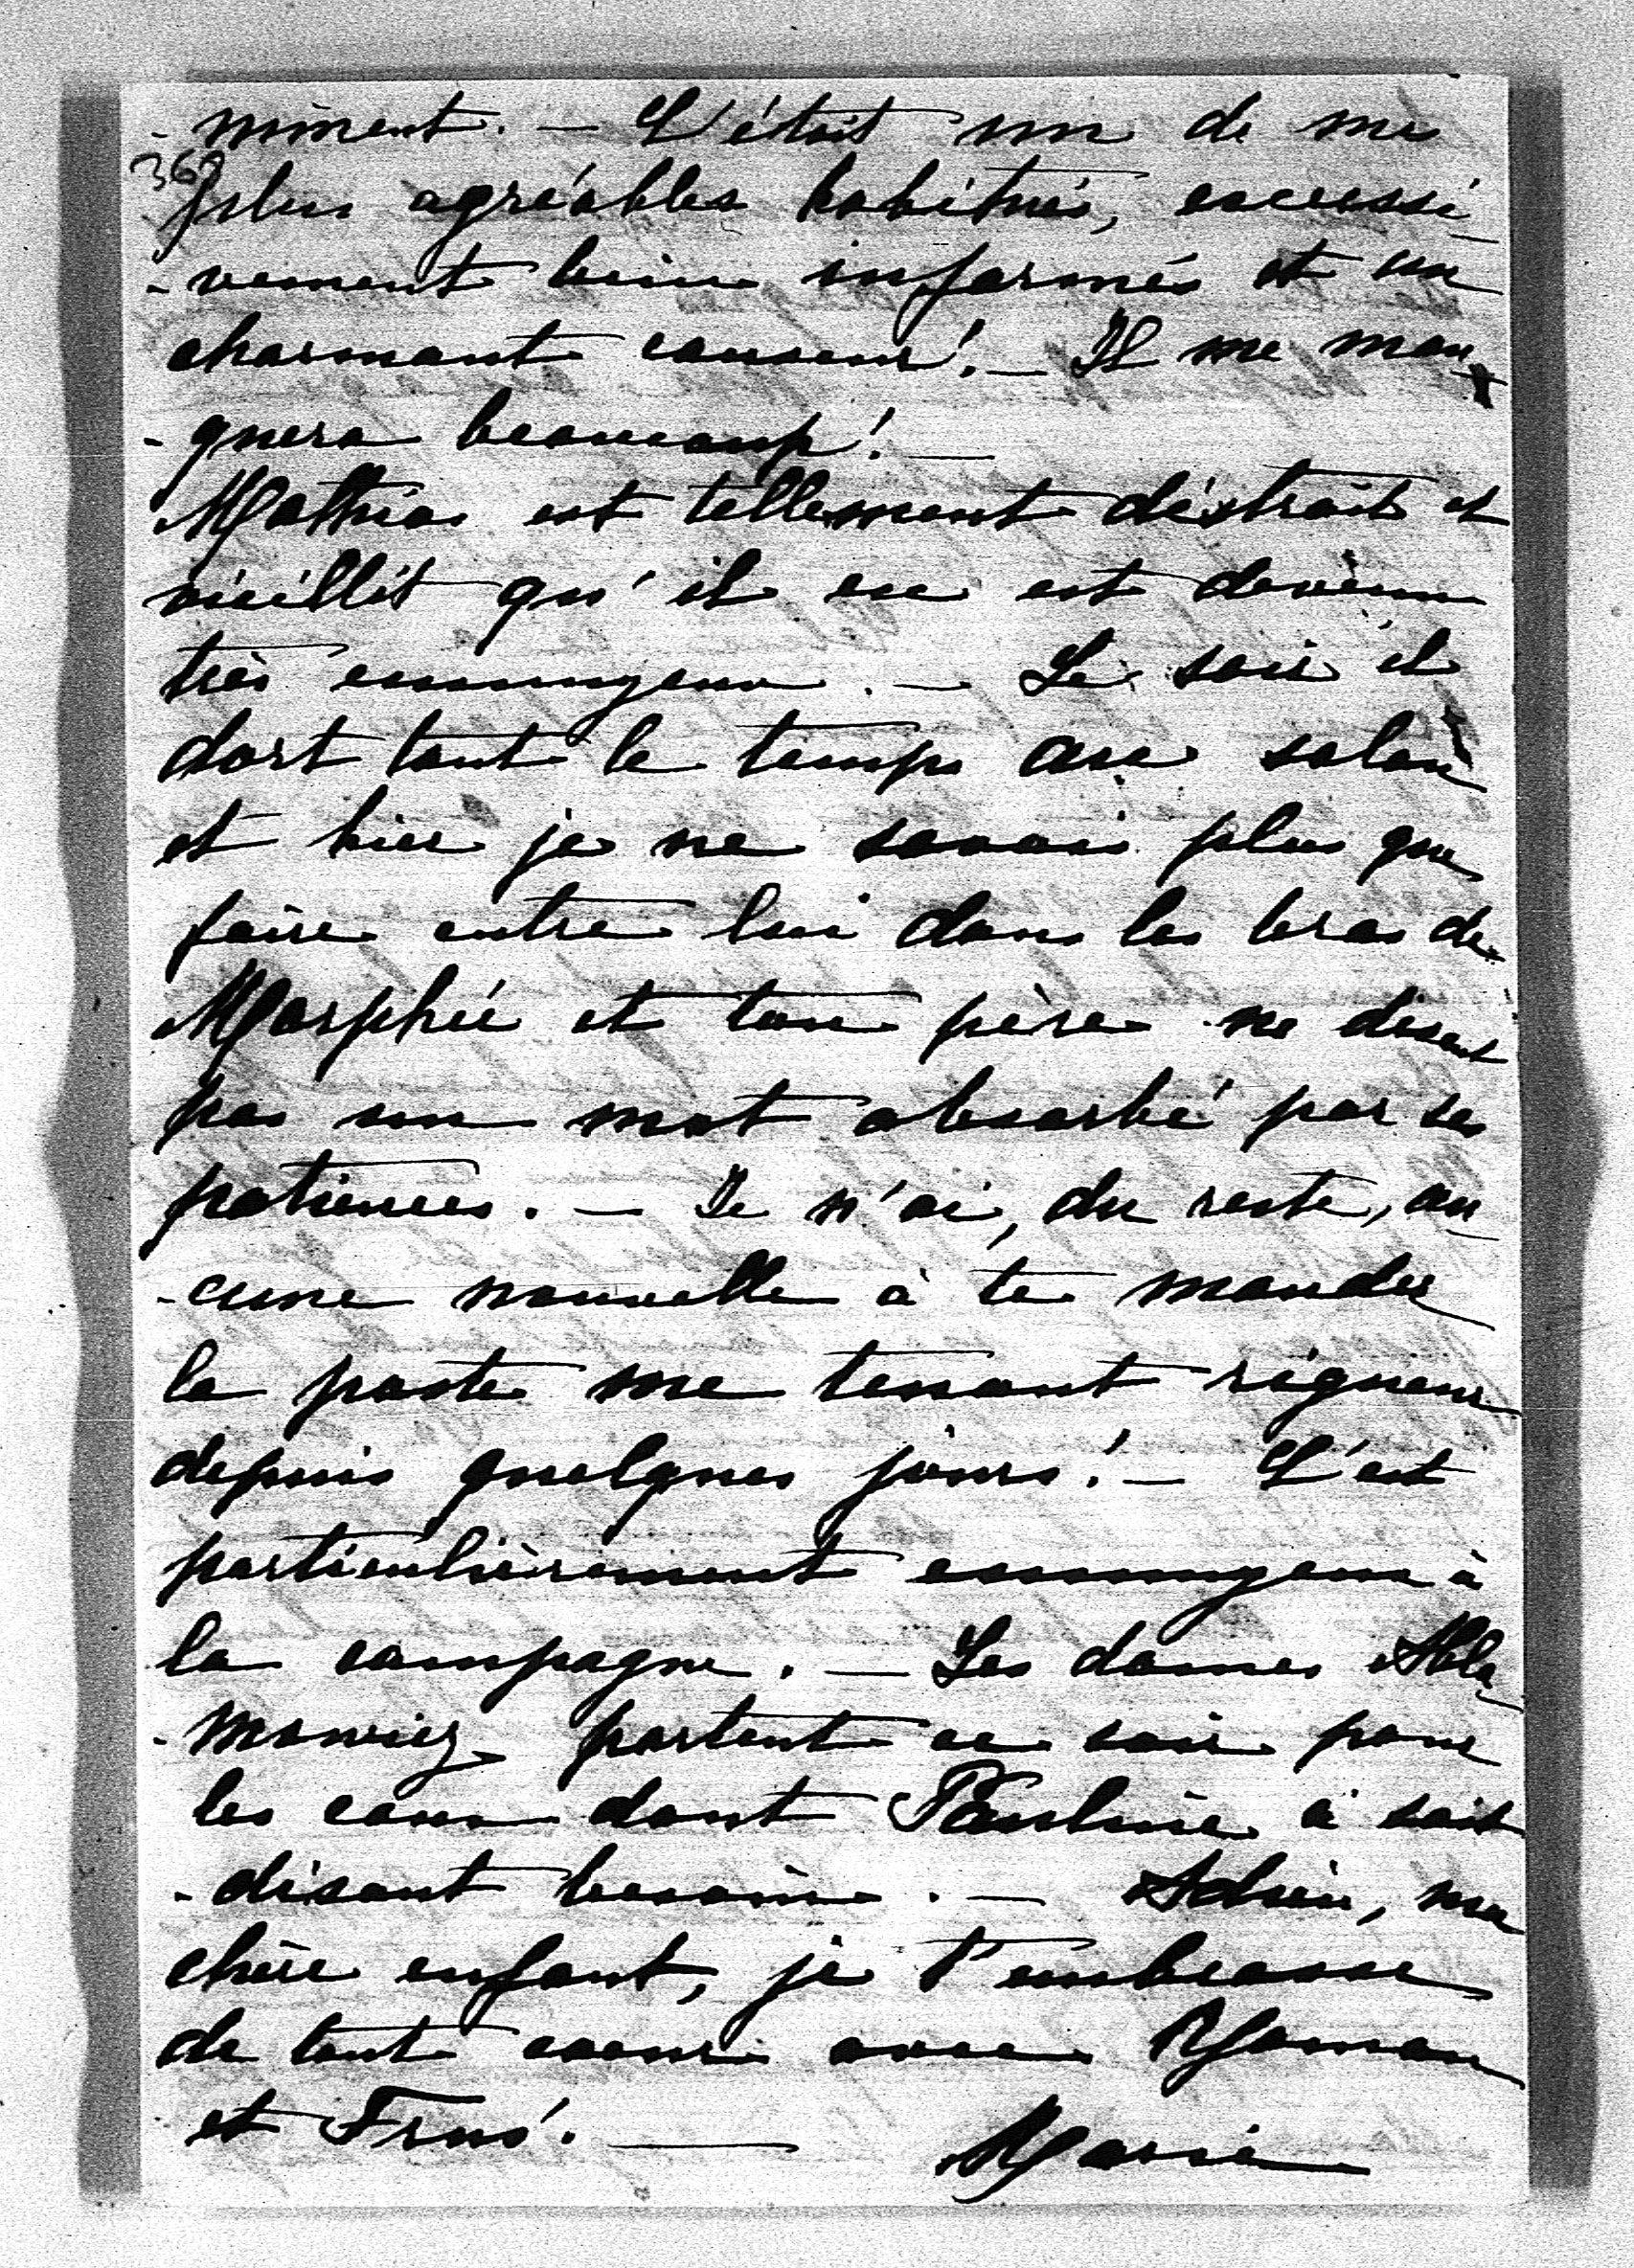 -niment. — C'était un de mes
362
plus agréables habitués, excessi-
-vement bien informés et un
charmant causeur! — Il me man-
-quera beaucoup! —
Mathias est tellement distrait et
vieillit qu'il en est devenu
très ennuyeux. — Le soir il
dort tout le temps au salon
et hier je ne savais plus que
faire entre lui dans les bras de
Morphée et ton père ne disant
pas un mot absorbé par ses
patiences. — Je n'ai, du reste, au-
-cune nouvelle à te mander
la poste me tenant rigueur
depuis quelques jours! — C'est
particulièrement ennuyeux à
la campagne. — Les dames Abla-
-mowicz partent ce soir pour
les eaux dont Pauline a soit
-disant besoin. — Adieu, ma
chère enfant, je t'embrasse
de tout coeur avec
et —
Marie